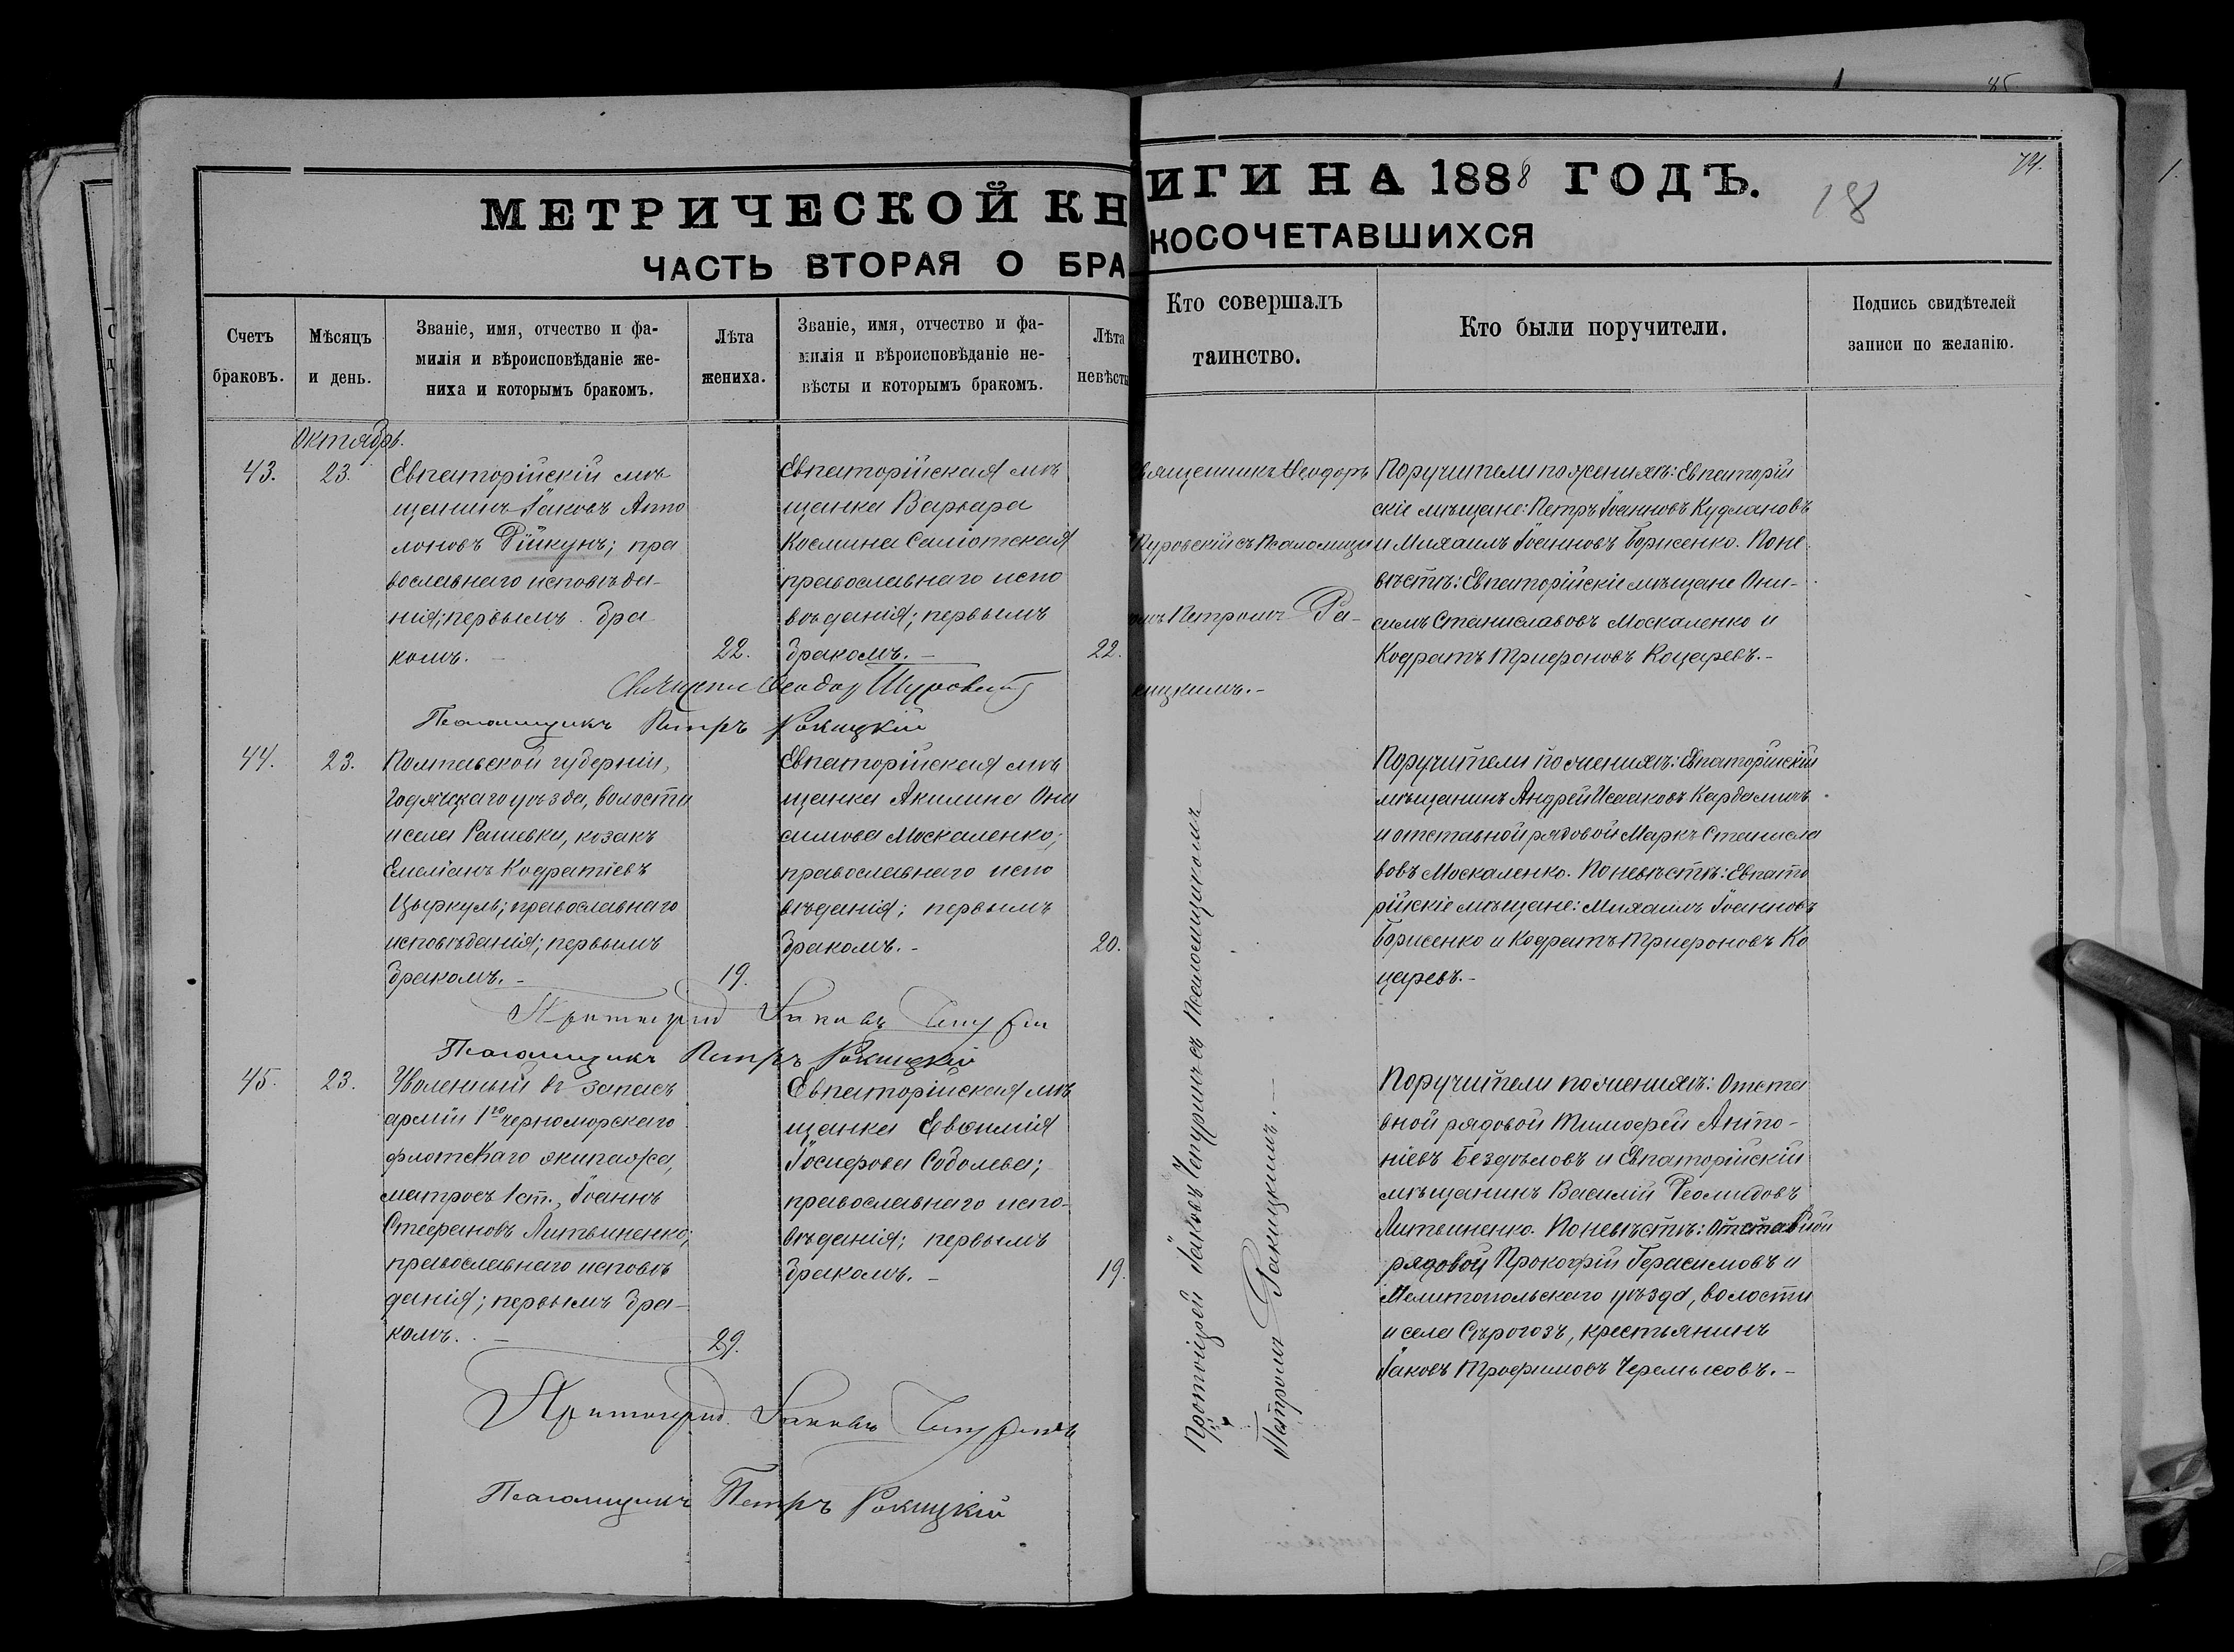 45
74.
18
1.
МЕТРИЧЕСКОЙ КНИГИ НА 1888 ГОДЪ.
ЧАСТЬ ВТОРАЯ О БРАКОСОЧЕТАВШИХСЯ
Счетъ браковъ.
Мѣсяцъ и день.
Званіе, имя, отчество и фа-
милія и вѣроисповѣданіе же-
ниха и которымъ бракомъ.
Лѣта жениха.
Званіе, имя, отчество и фа-
милія и вѣроисповѣданіе не-
вѣсты и которымъ бракомъ.
Лѣта невѣсты
Кто совершалъ
таинство.
Кто были поручители.
Подпись свидѣтелей
записи по желанію.
Октябрь.
43.
23.
Евпаторійскій мѣ
щанинъ Іаковъ Аппо
лоновъ; пра
вославнаго исповѣда-
нія; первымъ бра
комъ. –
22.
Евпаторійская мѣ
щанка Варвара
Космина
православнаго испо
вѣданія; первымъ
бракомъ. –
22.
вященникъ Ѳеодоръ
съ Псаломщи
омъ Петромъ Ра-
кицкимъ. –
Поручители по женихѣ: Евпаторій
скіе мѣщане: Петръ Іоанновъ Кудлановъ
и Михаилъ Іоанновъ Борисенко. По не
вѣстѣ: Евпаторійскіе мѣщане Они-
симъ Станиславовъ Москаленко и
Кодратъ Трифоновъ Коцаревъ. –
Священ Ѳеодор
Псаломщикъ Петръ Ракицкій
44.
23.
Полтавской губерніи,
Годячскаго уѣзда, волости
и села Рашевки, козакъ
Емеліанъ Кодратіевъ
Цыркуль; православнаго
исповѣданія; первымъ
бракомъ. –
19.
Евпаторійская мѣ
щанка Акилина Они
симова Москаленко;
православнаго испо
вѣданія; первымъ
бракомъ. –
20.
Поручители по женихѣ: Евпаторійскій
мѣщанинъ Андрей Исааковъ
и отставной рядовой Маркъ Станисла
вовъ Москаленко. По невѣстѣ: Евпато
рійскіе мѣщане: Михаилъ Іоанновъ
Борисенко и Кодратъ Трифоновъ Ко
царевъ. –
Протоіерей Іаковъ Чепурин
Псаломщикъ Петръ Ракицкій
45.
23.
Уволенный въ запасъ
арміи 1го черноморскаго
флотскаго экипажа,
матросъ 1 ст., Іоаннъ
Стефановъ Литвиненко;
православнаго исповѣ
данія; первымъ бра-
комъ. –
29.
Евпаторійская мѣ
щанка Евѳимія
Іосифова Соболева;
православнаго испо-
вѣданія; первымъ
бракомъ. –
19.
Протоіерей Іаковъ Чепуринъ съ Псаломщикомъ
Петромъ Ракицкимъ. –
Поручители по женихѣ: Отста
вной рядовой Тимофей Анто-
ніевъ Бездѣловъ и Евпаторійскій
мѣщанинъ Василій
Литвиненко. По невѣстѣ: Отставной
рядовой Прокофій Герасимовъ и
Мелитопольскаго уѣзда, волости
и села Сѣрогозъ, крестьянинъ
Іаковъ Трофимовъ Черемисовъ. –
Протоіерей Іаковъ Чепуринъ
Псаломщикъ Петръ Ракицкій